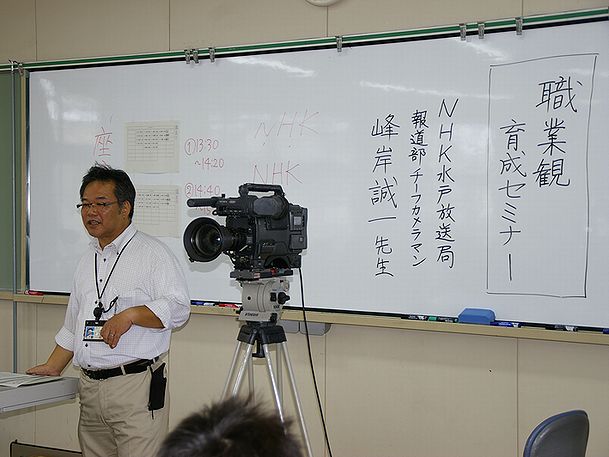 職業観
育成セミナー
NHK水戸放送局
報道部チーフカメラマン
峰岸誠一先生
NHK
NHK
①13:30
~14:20
②14:40
座